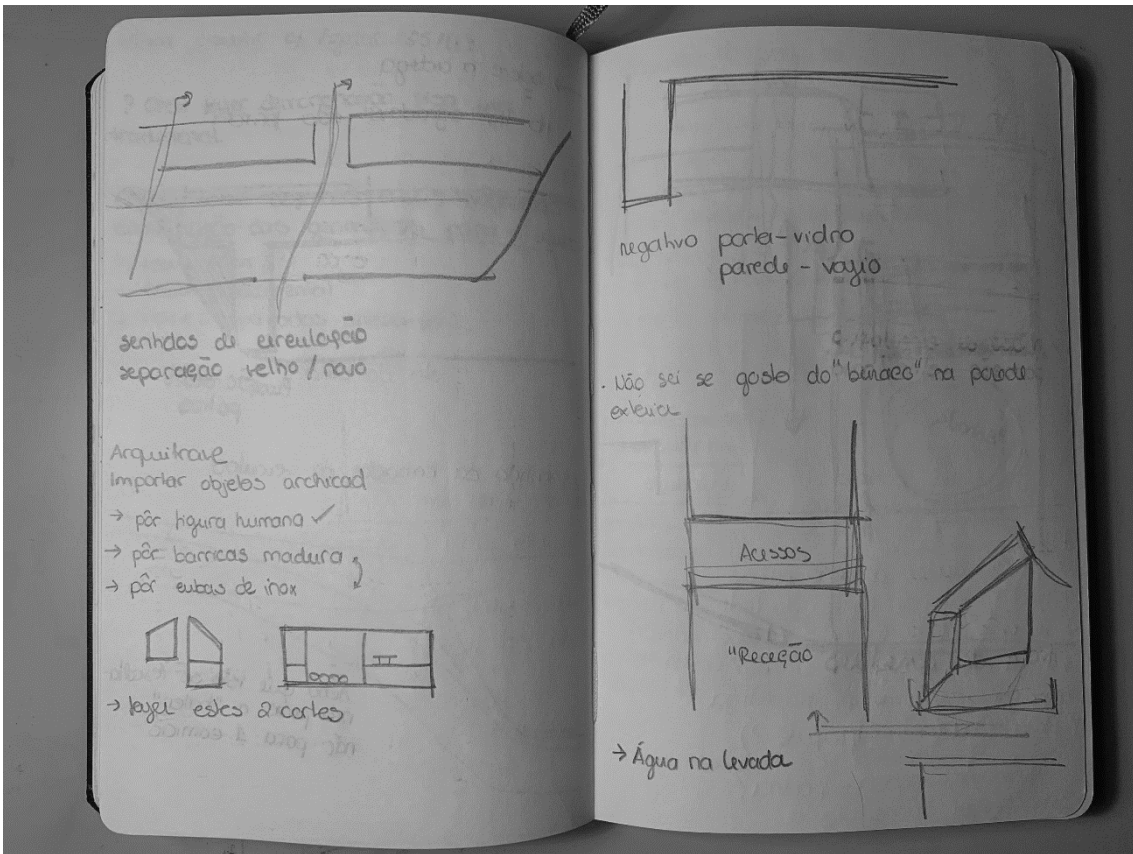 sentidos de circulação
separação velho / novo
Arquitrave
Importar objetos archicad
→ pôr figura humana ✓
→ pôr barricas madura
→ pôr cubas de inox
→ fazer estes 2 cortes
negativo porta-vidro
parede - vazio
. Não sei se gosto do "buraco" na parede
exterior
Acessos
"Receção
→ Água na levada